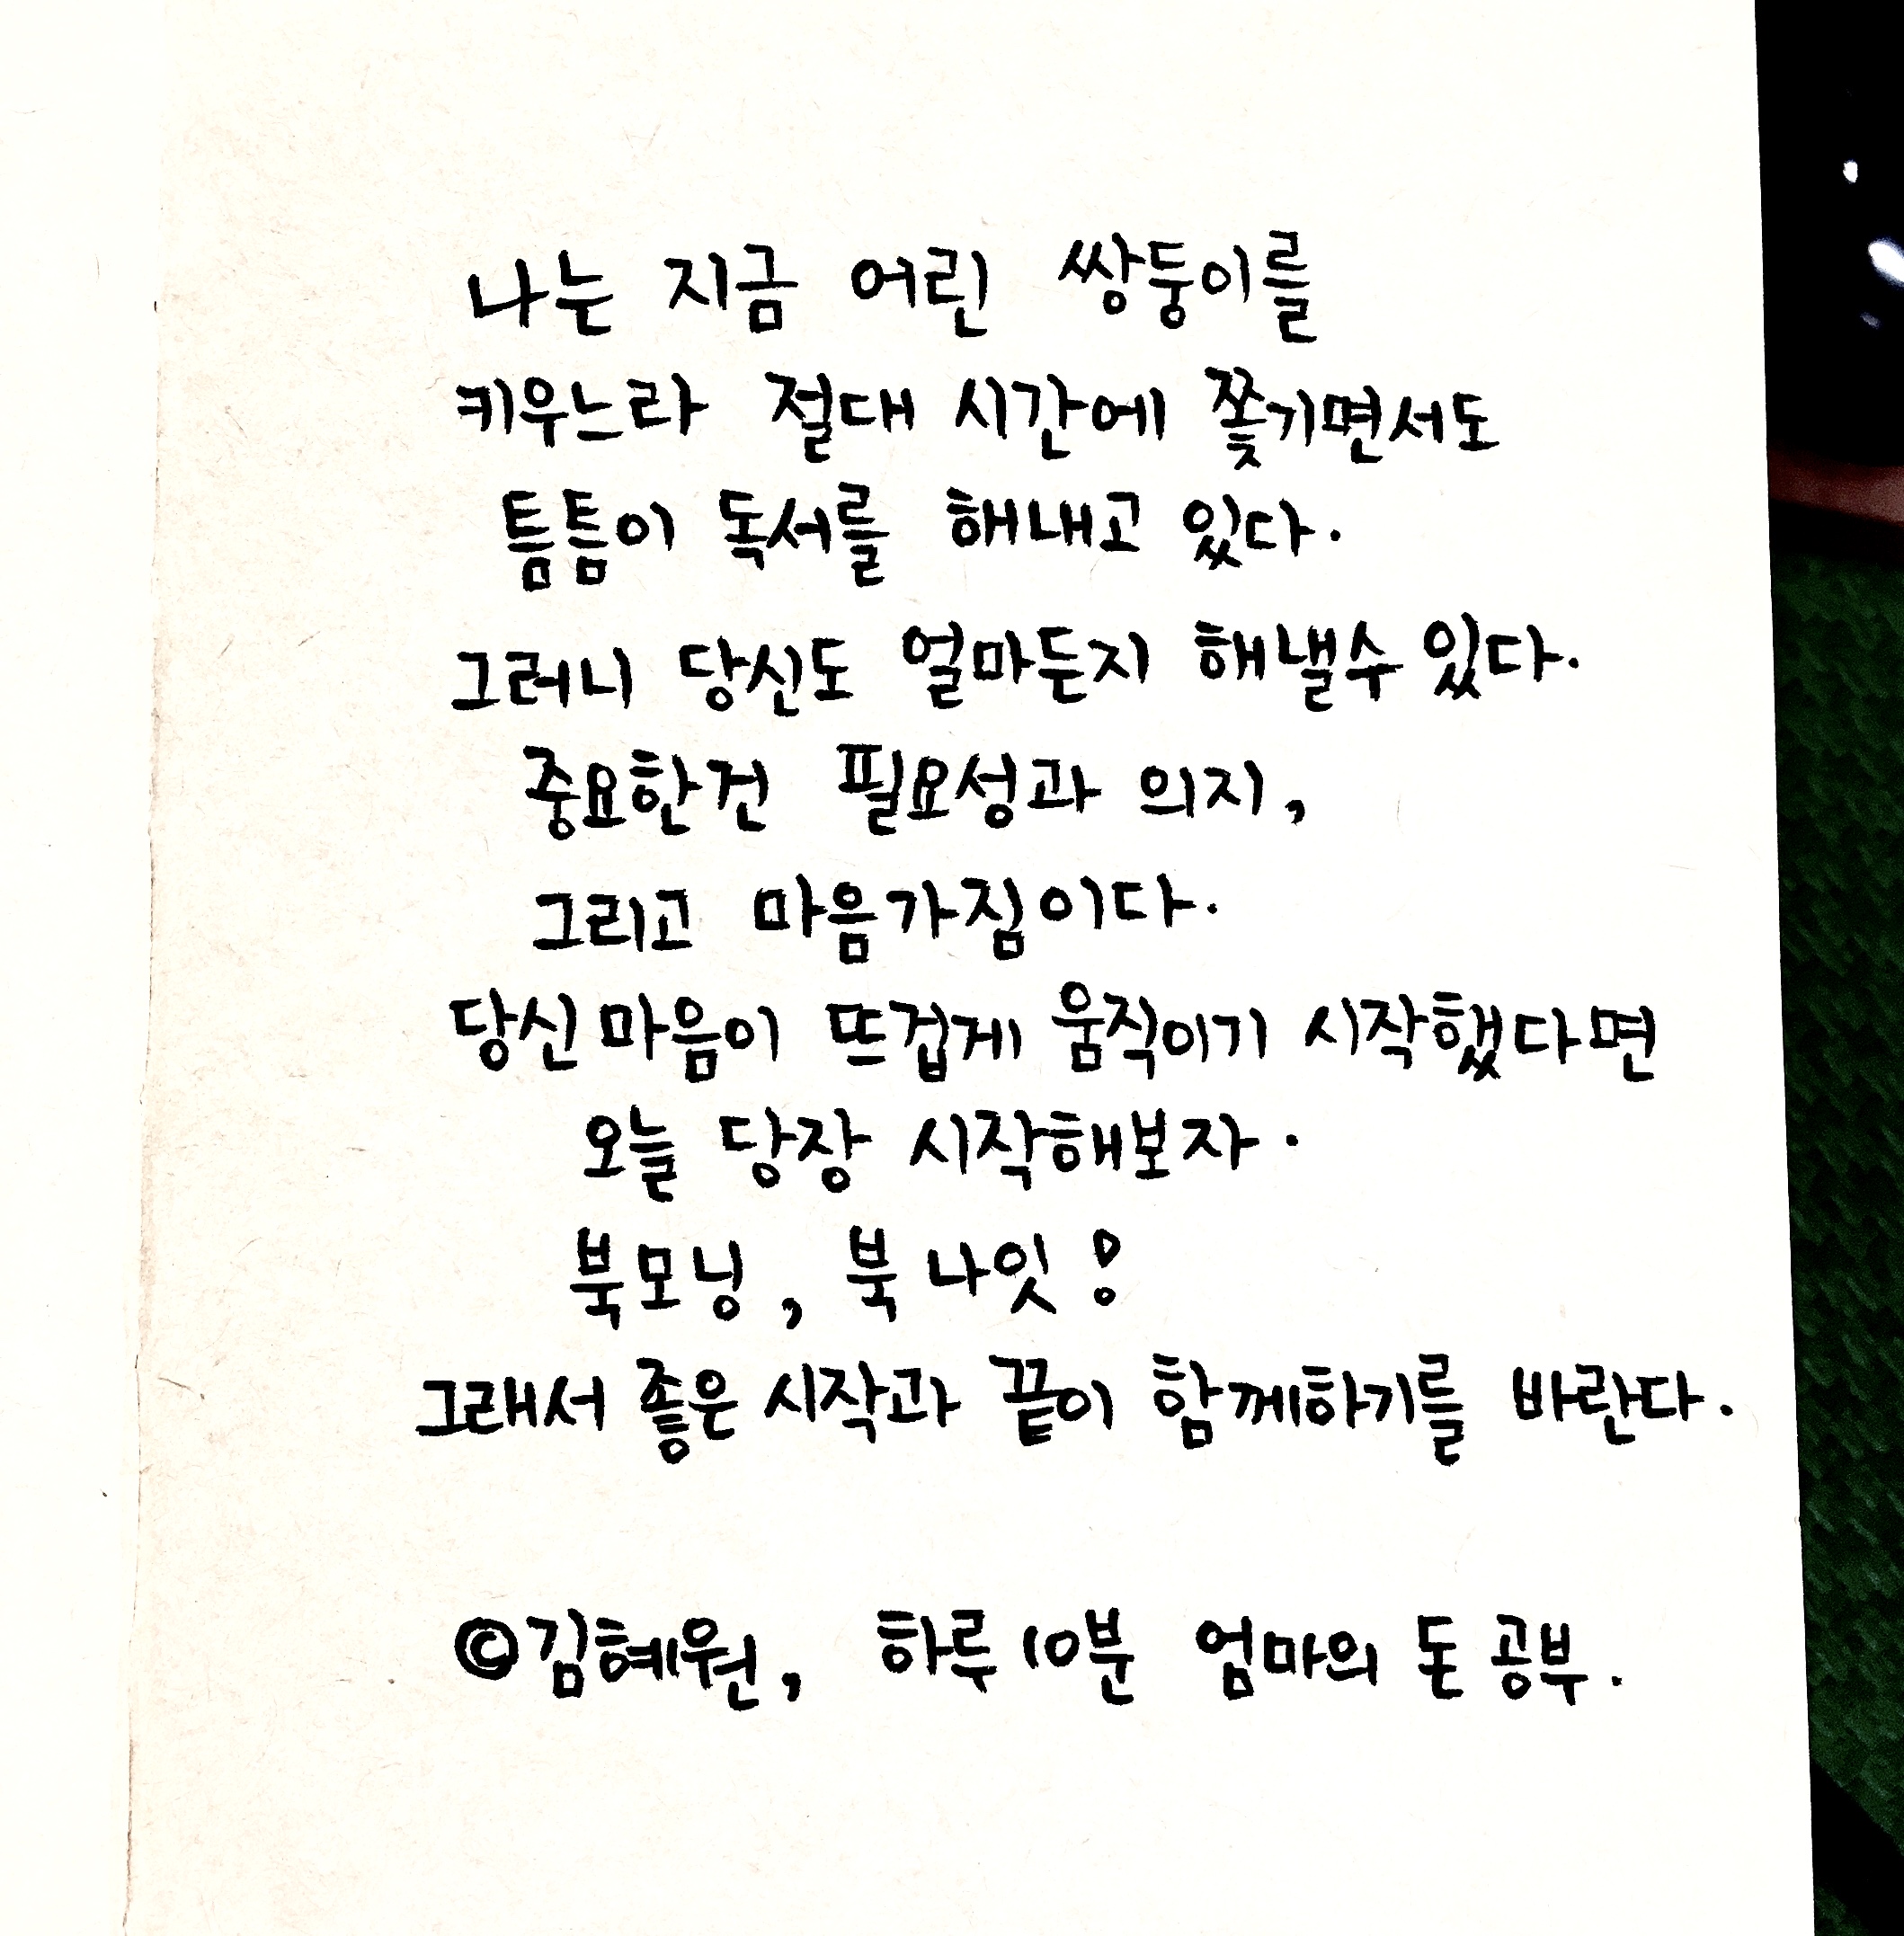 나는 지금 어린 쌍둥이를
키우느라 절대 시간에 쫓기면서도
틈틈이 독서를 해내고 있다.
그러니 당신도 얼마든지 해낼수 있다.
중요한건 필요성과 의지,
그리고 마음가짐이다.
당신 마음이 뜨겁게 움직이기 시작했다면
오늘 당장 시작해보자.
북모닝, 북 나잇!
그래서 좋은 시작과 끝이 함께하기를 바란다.
©김혜원, 하루 10분 엄마의 돈 공부.